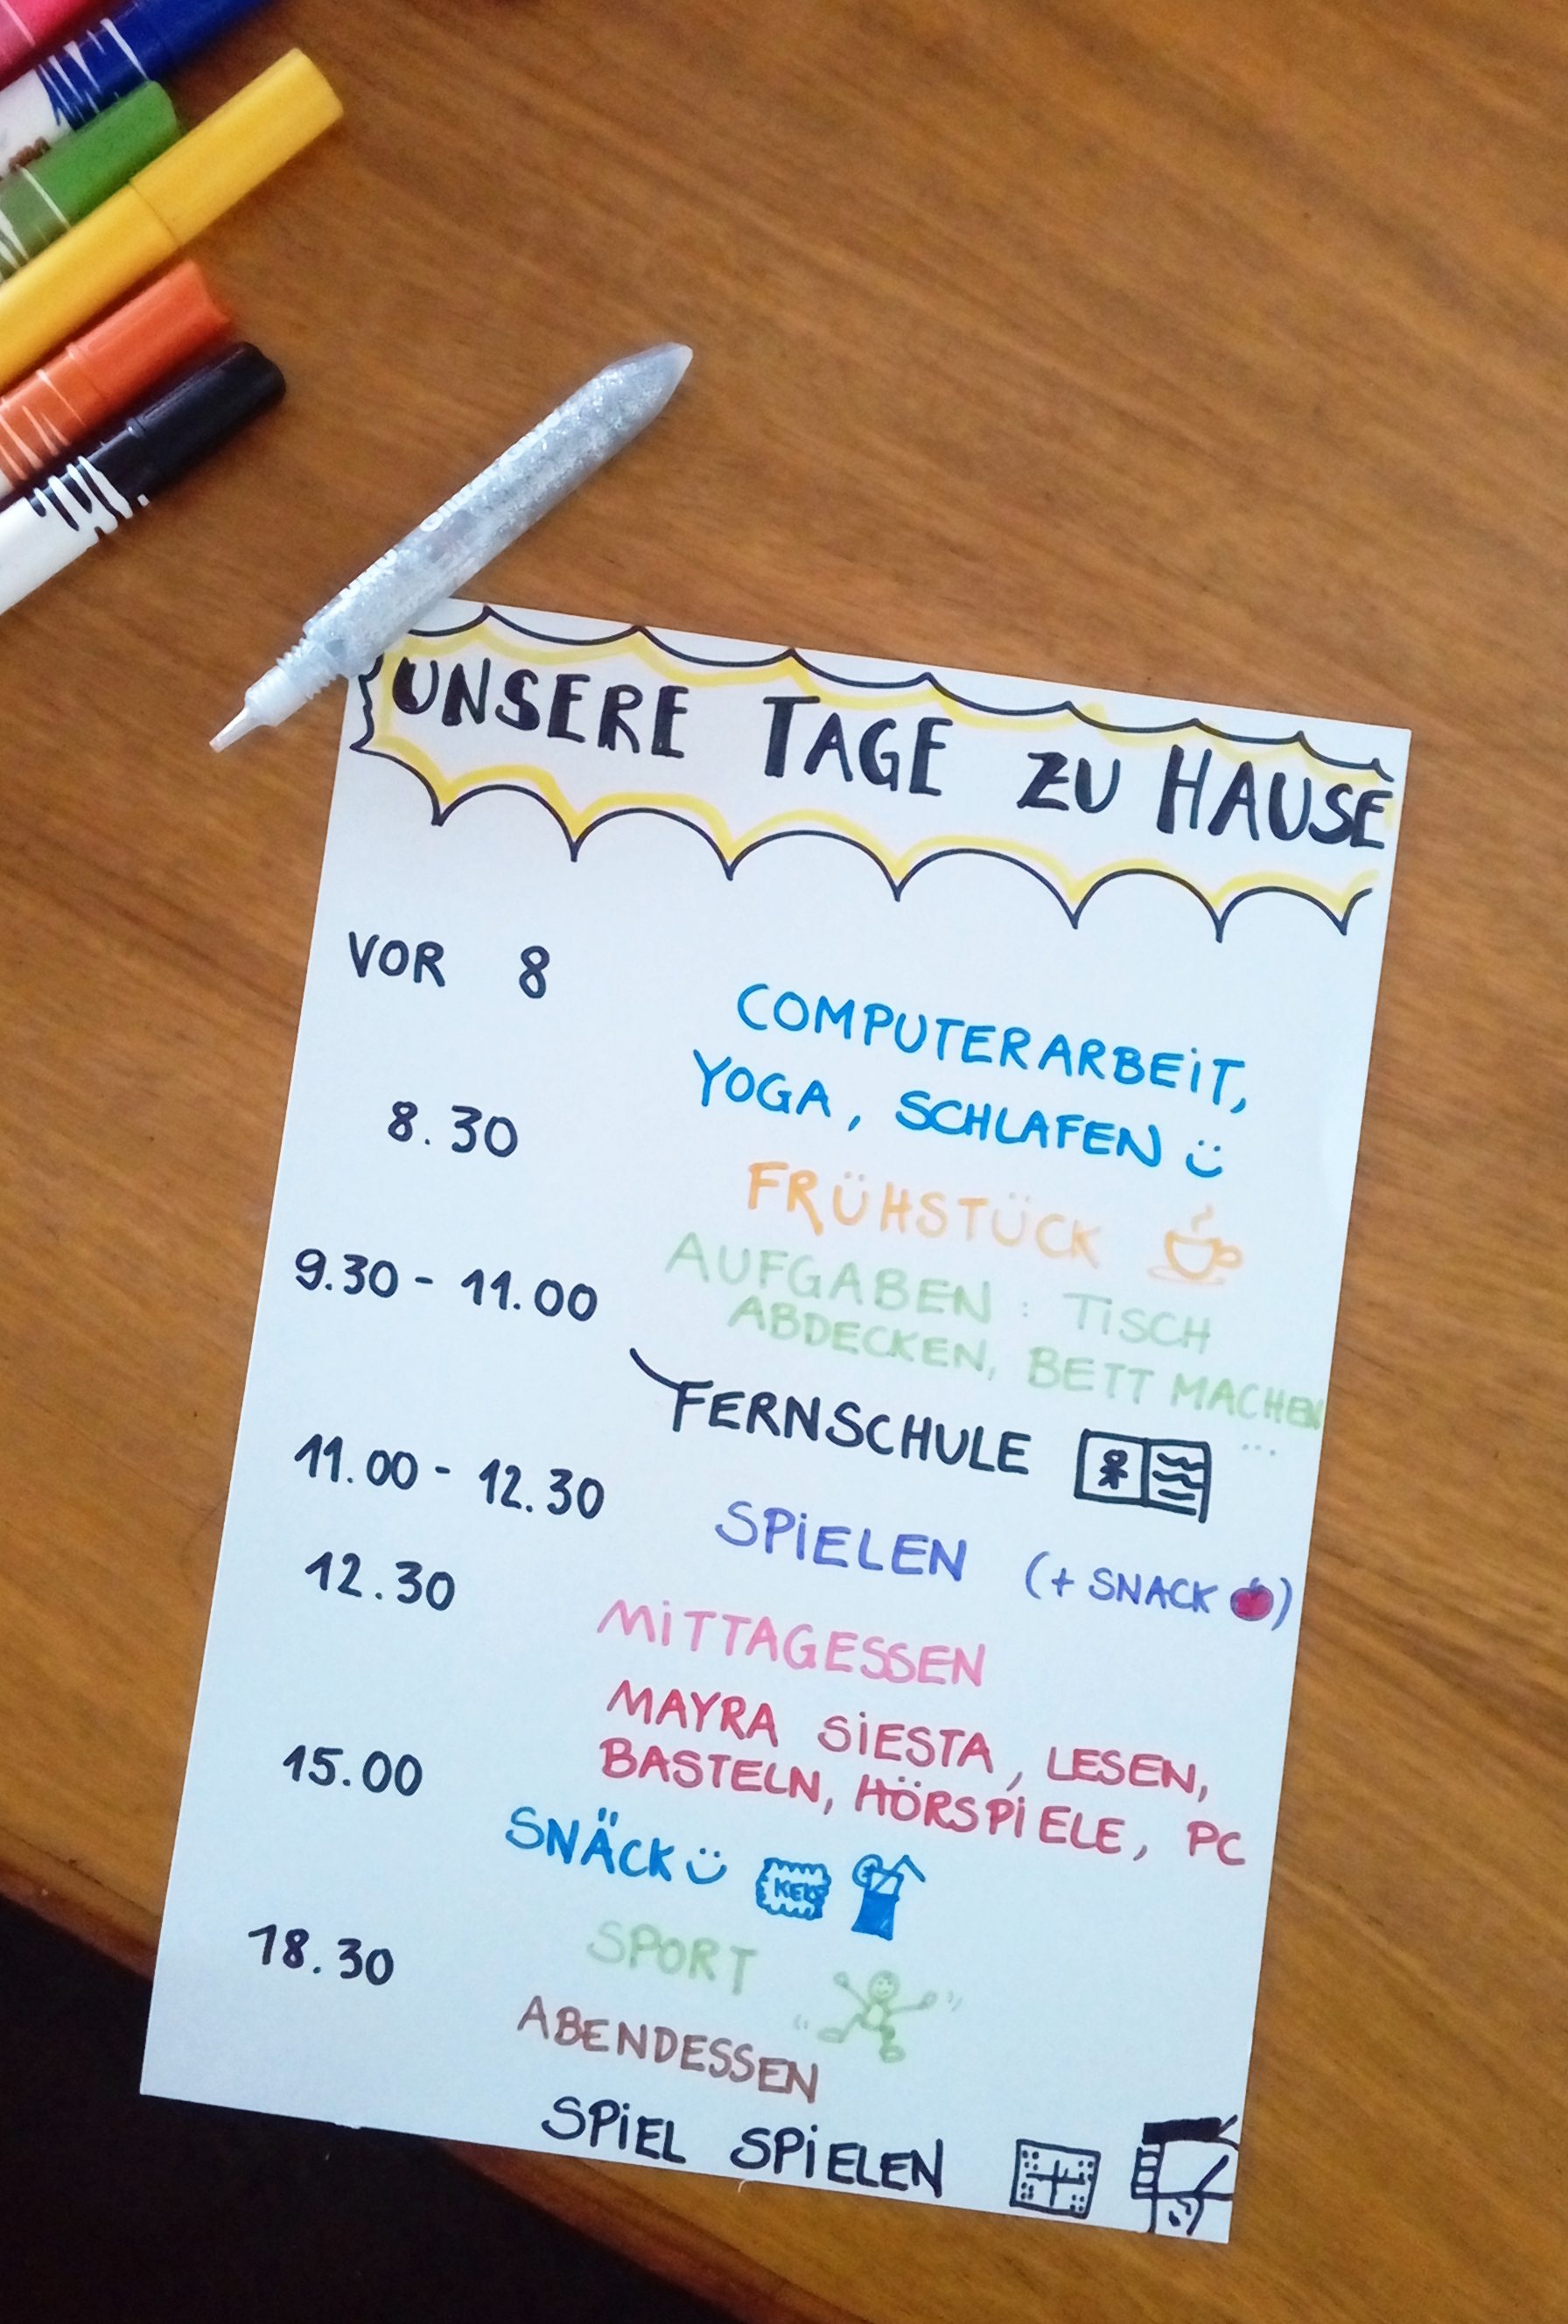 UNSERE TAGE ZU HAUSE
VOR 8
COMPUTERARBEIT,
YOGA, SCHLAFEN
8.30
FRÜHSTÜCK
AUFGABEN: TISCH
ABDECKEN, BETT MACHEN
...
9.30 - 11.00
FERNSCHULE
11.00 - 12.30
SPIELEN (+ SNACK )
12.30
MITTAGESSEN
MAYRA SIESTA, LESEN,
BASTELN, HÖRSPIELE, PC
15.00
SNÄCK
KEKS
SPORT
18.30
ABENDESSEN
SPIEL SPIELEN